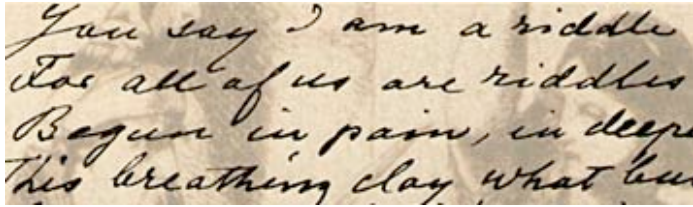 You say I am a riddle
For all of us are riddles
Begun in pain, in deepe
This breathing clay what